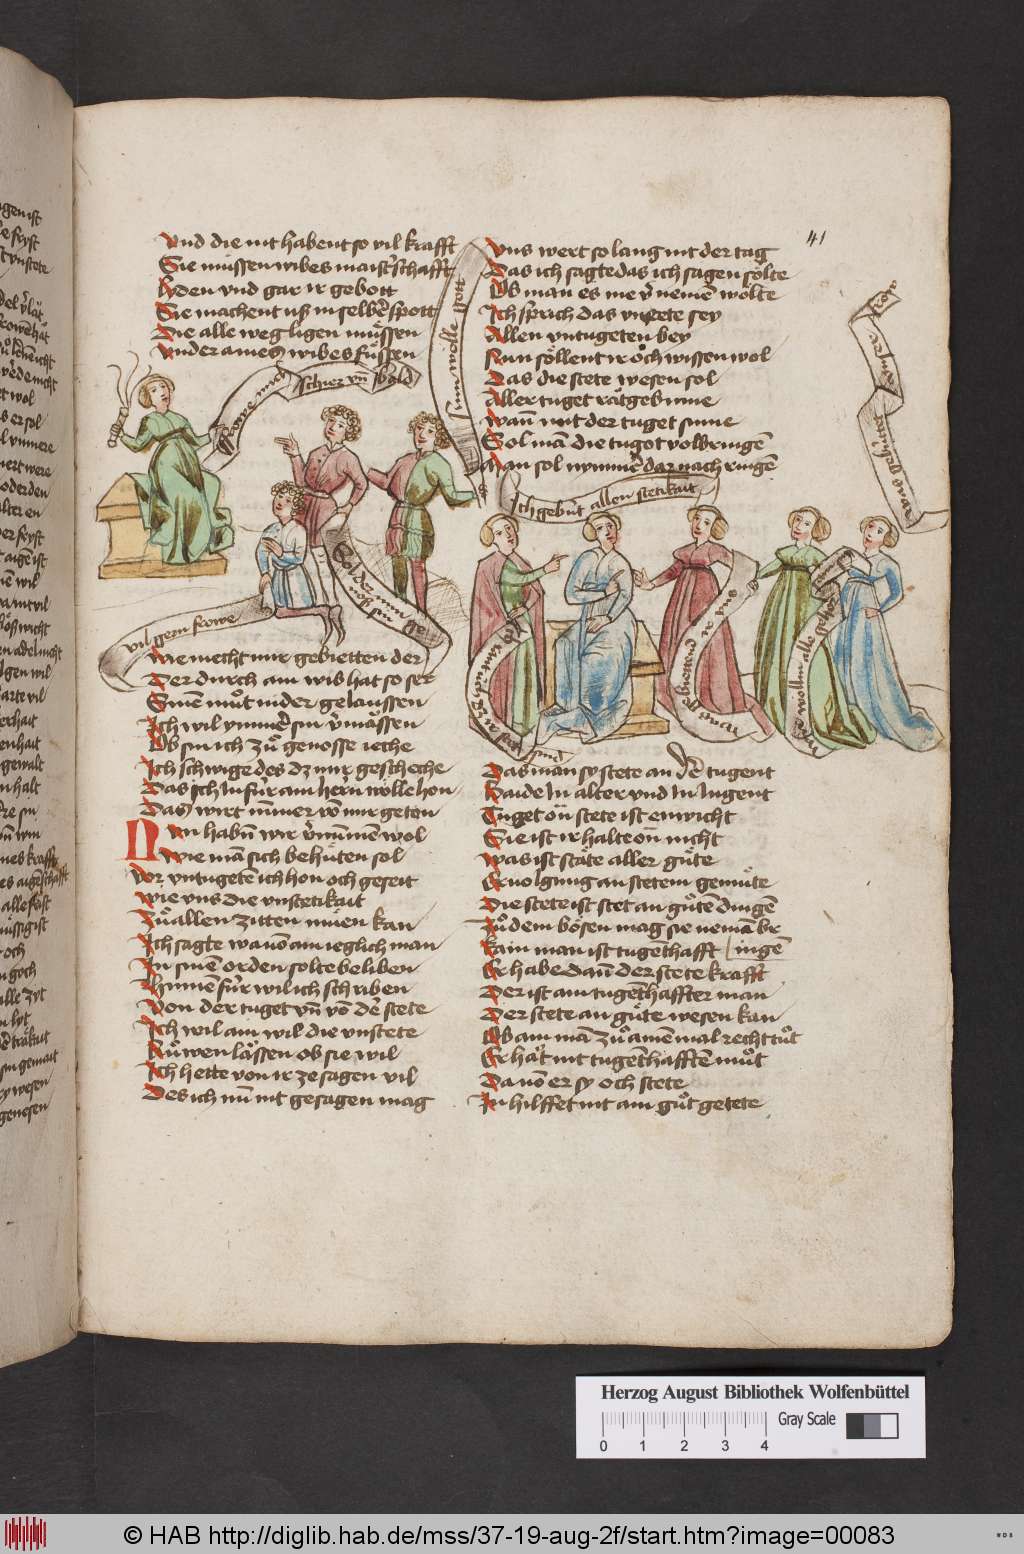 41
Vnd die nit habent so vil krafft
Sie müssen wibes maisterschafft
Lyden vnd gar ir gebott
Sie machent uß in selber spott
Die alle weg ligen müssen
Vnder aines wibes füssen
schier vn̄ bald
vil gern frowe
Sol der min ge
noß sin
Wie mecht mir gebietten der
Der durch ain wib hat so ser
Sinen mūt nider gelaussen
Ich wil ymmer sin v̄mässen
Ob sin ich zū genosse iehe
Ich schwige des dz mir geschehe
Das ich In für ain herrn wölle hon
Das wirt nimmer vō mir geton
Nun habn wir v̄nummen wol
Wie man sich behüten sol
Vor vntugeten ich hon och geseit
Wie vns die vnstetikait
Zū allen zitten müen kan
Ich sagte wa vō ain ieglich man
In sinē orden solte beliben
Hinnen für wil ich schriben
Von der tuget vn̄ vō der stete
Ich wil ain wil die vnstete
Rūwen lässen ob sie wil
Ich hette von ir ze sagen vil
Des ich nū nit gesagen mag
Vns wert so lang nit der tag
Das ich sagte das ich sagen sölte
Ob man es me v̄nemē wölte
Ich sprich das vnstete sey
Allen vntugeten bey
Nun söllent ir och wissen wol
Das die stete wesen sol
Aller tuget rätgebinne
Wan̄ mit der tuget sinne
Sol mā die tugot volbringē
Man sol nymmer dar nach ringē
Ich gebüt allen stetikait
Das man sy stete an der tugent
Baide In alter vnd In Iugent
Tuget on stete ist enwicht
Sie ist ir halte on nicht
Was ist stäte aller güte
Ervolgung an stetem gemüte
Die stete ist stet an gūtē dingē
Zū dem bösen mag sie nemān br
ingē
Kain man ist tugethafft
Er habe dan̄ der stete krafft
Der ist ain tugethaffter man
Der stete an güte wesen kan
Ob ain mā zū ainē mal recht tūt
Er hāt nit tugethafftē mūt
Da vō er sy och stete
In hilffet nit ain gūt getete
Herzog August Bibliothek Wolfenbüttel
0 1 2 3 4
Gray Scale
© HAB http://diglib.hab.de/mss/37-19-aug-2f/start.htm?image=00083
WDB